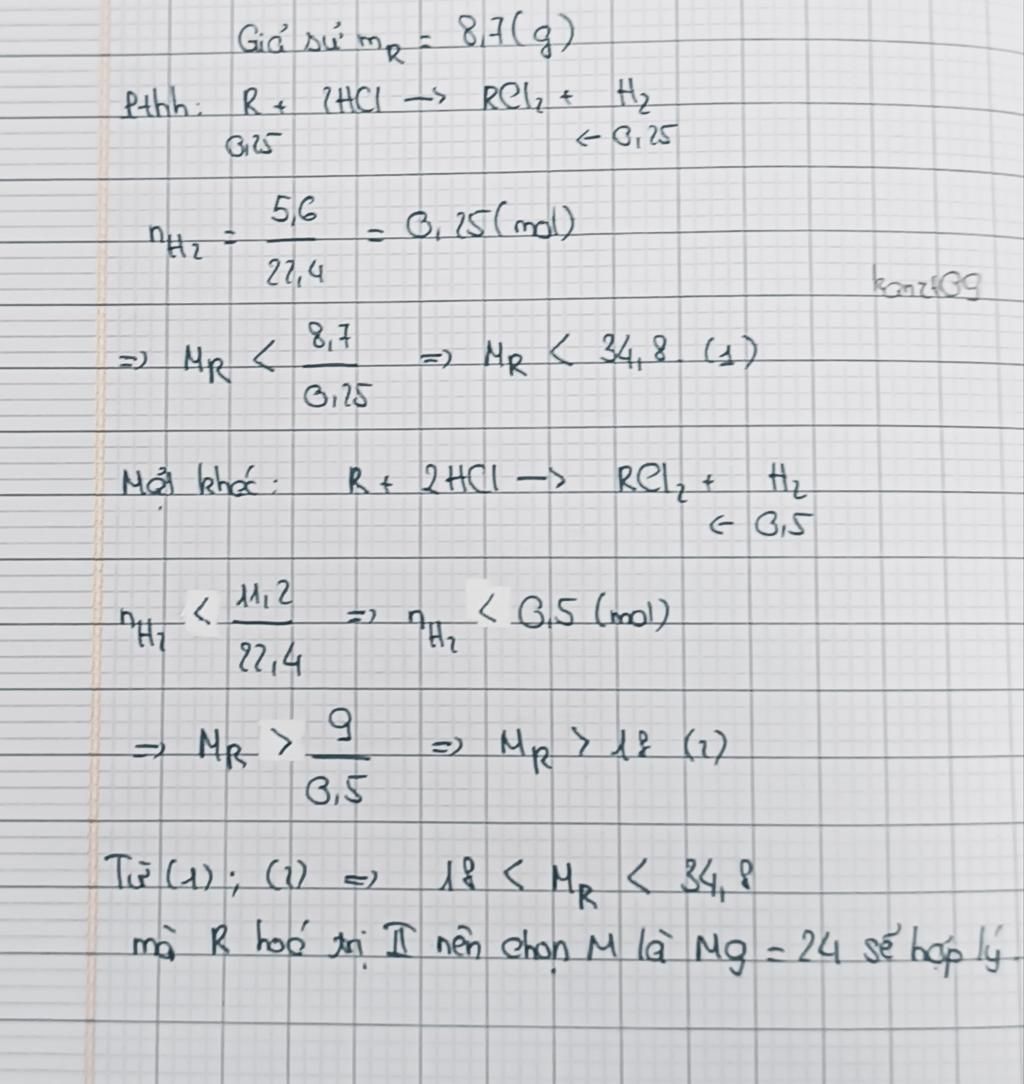 Giả sử m_R = 8,7(g)
Pthh: R + 2HCl → RCl₂ + H₂
0,25 ← 0,25
n_H₂ = 5,6/22,4 = 0,25(mol)
kanzt09
=> M_R < 8,7/0,25 => M_R < 34,8 (1)
Mặt khác: R + 2HCl → RCl₂ + H₂
← 0,5
n_H₂ < 11,2/22,4 => n_H₂ < 0,5 (mol)
=> M_R > 9/0,5 => M_R > 18 (2)
Từ (1); (2) => 18 < M_R < 34,8
mà R hoá trị II nên chọn M là Mg = 24 sẽ hợp lý